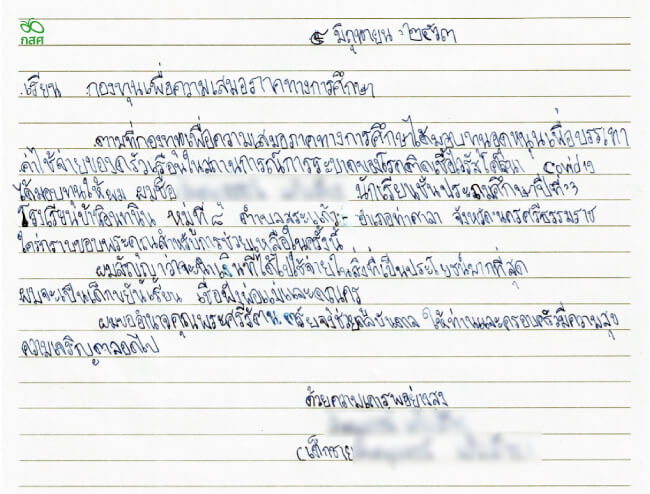 กสศ
๕ มิถุนายน ๒๕๖๓
เรียน กองทุนเพื่อความเสมอภาคทางการศึกษา
ตามที่กองทุนเพื่อความเสมอภาคทางการศึกษาได้มอบเงินอุดหนุนเพื่อบรรเทา
ค่าใช้จ่ายของครัวเรือนในสถานการณ์การระบาดของโรคติดเชื้อไวรัสโคโรนา Covid 19
ได้มอบทุนให้ผม ผมชื่อ นักเรียนชั้นประถมศึกษาปีที่ 3
โรงเรียน หมู่ที่ ๘ ตำบลสระแก้ว อำเภอท่าศาลา จังหวัดนครศรีธรรมราช
ใคร่กราบขอบพระคุณสำหรับการช่วยเหลือในครั้งนี้
ผมสัญญาว่าจะนำเงินที่ได้ไปใช้จ่ายในสิ่งที่เป็นประโยชน์มากที่สุด
ผมจะเป็นเด็กขยันเรียน เชื่อฟังพ่อแม่และคุณครู
ผมขออำนาจคุณพระศรีรัตนตรัยจงช่วยดลบันดาล ให้ท่านและครอบครัวมีความสุข
ความเจริญตลอดไป
ด้วยความเคารพอย่างสูง
(เด็กชาย